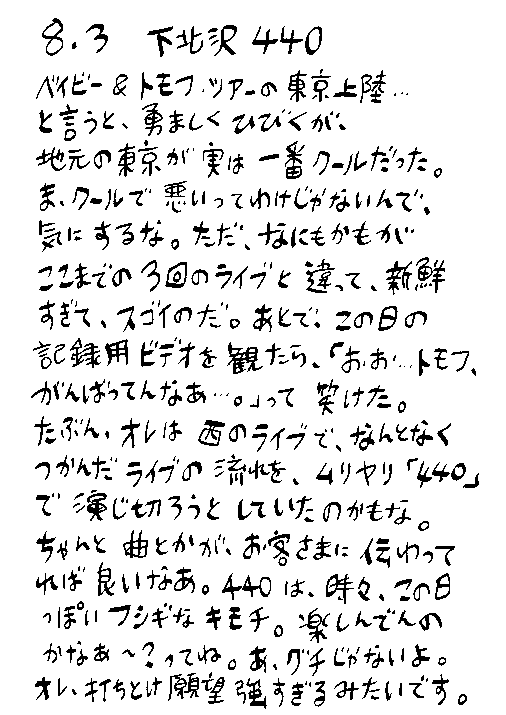 8.3 下北沢 440
ベイビー & トモフ・ツアーの東京上陸…
と言うと、勇ましくひびくが、
地元の東京が実は一番クールだった。
ま、クールで悪いってわけじゃないんで、
気にするな。ただ、なにもかもが
ここまでの3回のライブと違って、新鮮
すぎて、スゴイのだ。あとで、この日の
記録用ビデオを観たら、「おお…トモフ、
がんばってんなあ…。」って笑けた。
たぶん、オレは西のライブで、なんとなく
つかんだライブの流れを、ムリヤリ「440」
で演じ切ろうとしていたのかもな。
ちゃんと曲とかが、お客さまに伝わって
れば良いなあ。440は、時々、この日
っぽいフシギなキモチ。楽しんでんの
かなぁ〜?ってね。あ、グチじゃないよ。
オレ、打ちとけ願望強すぎるみたいです。